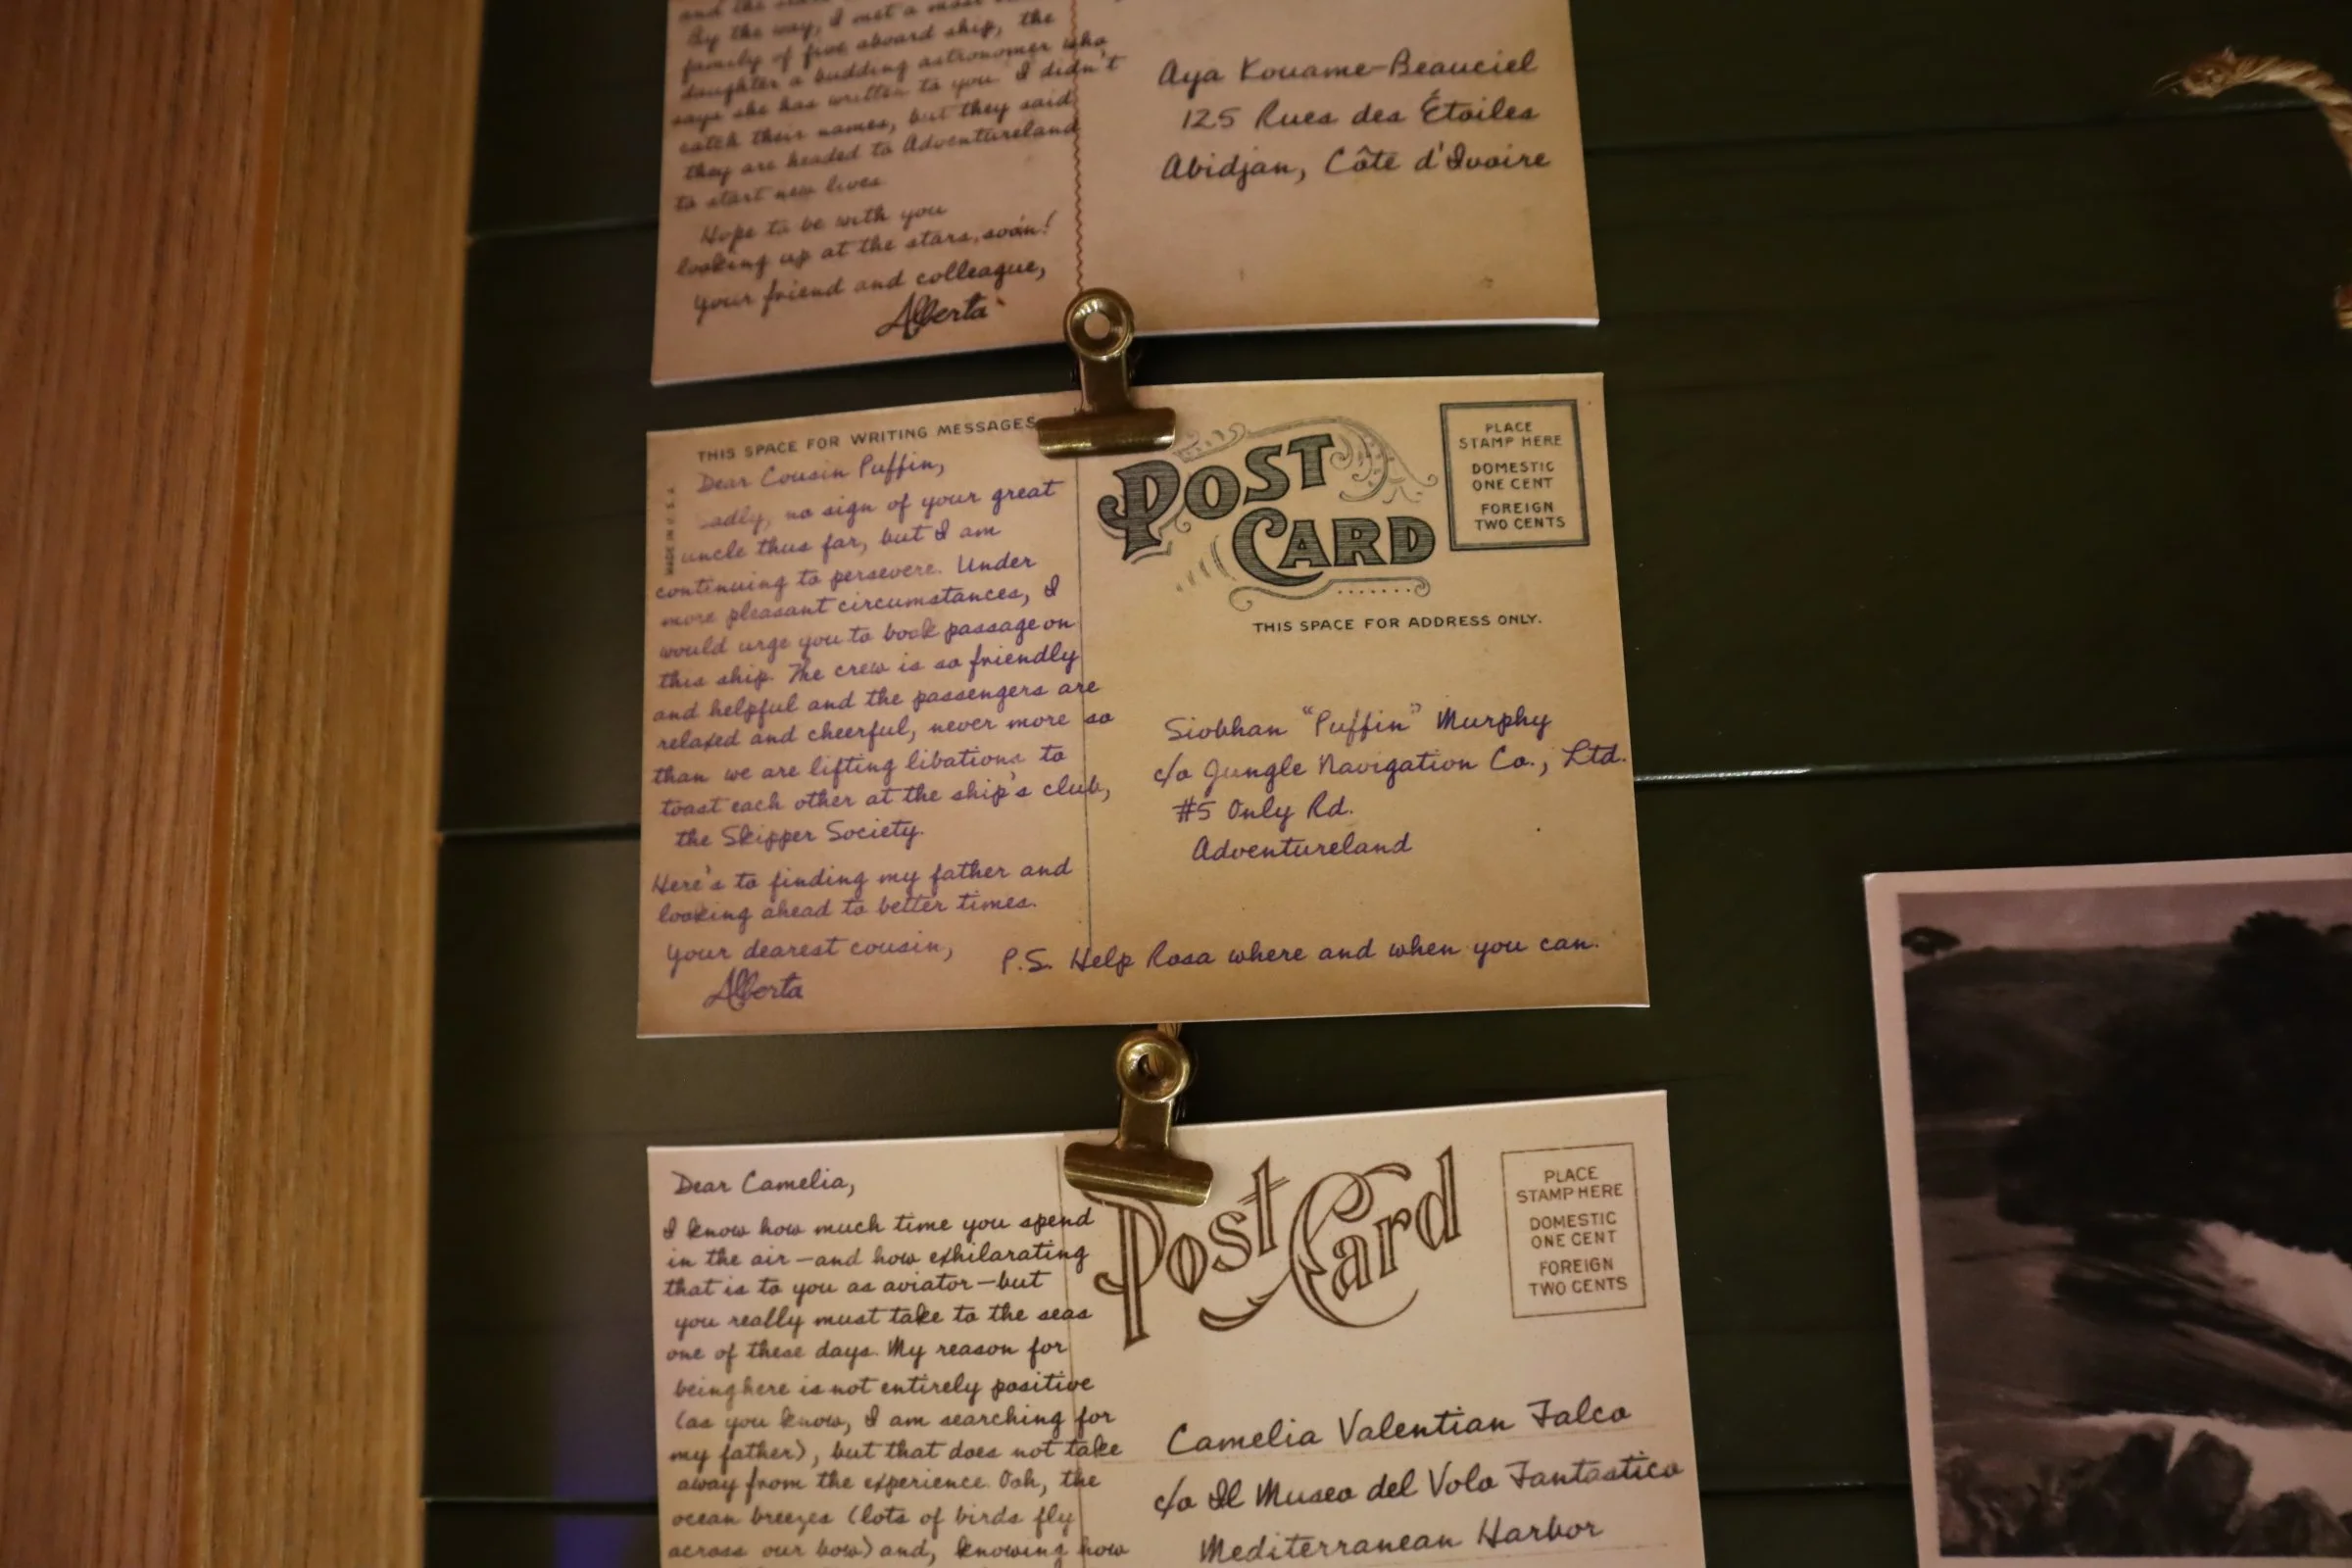 By the way, I met a most
family of five aboard ship, the
daughter a budding astronomer who
says she has written to you. I didn't
catch their names, but they said
they are headed to Adventureland
to start new lives.
Hope to be with you
looking up at the stars, soon!
Your friend and colleague,
Alberta
Aya Kouame-Beauciel
125 Rues des Étoiles
Abidjan, Côte d'Ivoire
THIS SPACE FOR WRITING MESSAGES
MADE IN U.S.A.
Dear Cousin Puffin,
Sadly, no sign of your great
uncle thus far, but I am
continuing to persevere. Under
more pleasant circumstances, I
would urge you to book passage on
this ship. The crew is so friendly
and helpful and the passengers are
relaxed and cheerful, never more so
than we are lifting libations to
toast each other at the ship's club,
the Skipper Society.
Here's to finding my father and
looking ahead to better times.
Your dearest cousin,
Alberta
POST CARD
PLACE
STAMP HERE
DOMESTIC
ONE CENT
FOREIGN
TWO CENTS
THIS SPACE FOR ADDRESS ONLY.
Siobhan "Puffin" Murphy
c/o Jungle Navigation Co., Ltd.
#5 Only Rd.
Adventureland
P.S. Help Rosa where and when you can.
Dear Camelia,
I know how much time you spend
in the air—and how exhilarating
that is to you as aviator—but
you really must take to the seas
one of these days. My reason for
being here is not entirely positive
(as you know, I am searching for
my father), but that does not take
away from the experience. Ooh, the
ocean breezes (lots of birds fly
across our bow) and, knowing how
Post Card
PLACE
STAMP HERE
DOMESTIC
ONE CENT
FOREIGN
TWO CENTS
Camelia Valentian Falco
c/o Il Museo del Volo Fantastico
Mediterranean Harbor